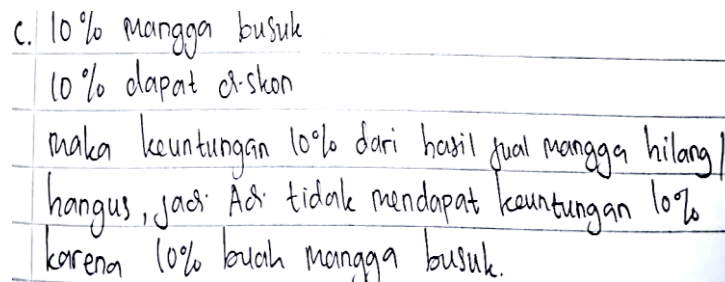 c. 10% mangga busuk
10% dapat diskon
maka keuntungan 10% dari hasil jual mangga hilang/
hangus, jadi Adi tidak mendapat keuntungan 10%
karena 10% buah mangga busuk.